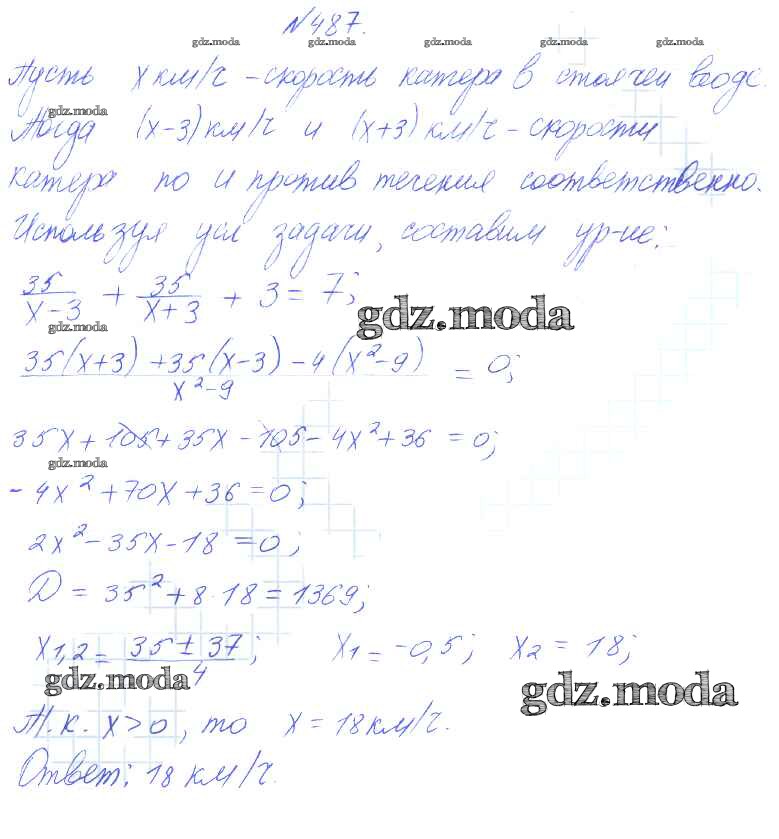 №487.
gdz.moda gdz.moda gdz.moda gdz.moda
Пусть x км/ч - скорость катера в стоячей воде.
gdz.moda
Тогда (x-3) км/ч и (x+3) км/ч - скорости
катера по и против течения соответственно.
Используя усл задачи, составим ур-ие:
35/(x-3) + 35/(x+3) + 3 = 7;
gdz.moda gdz.moda
(35(x+3) + 35(x-3) - 4(x²-9))/(x²-9) = 0;
35x + 105 + 35x - 105 - 4x² + 36 = 0;
gdz.moda
-4x² + 70x + 36 = 0;
2x² - 35x - 18 = 0;
D = 35² + 8·18 = 1369;
x1,2 = (35 ± 37)/4; x1 = -0,5; x2 = 18;
gdz.moda gdz.moda
Т.к. x > 0, то x = 18 км/ч.
Ответ: 18 км/ч.